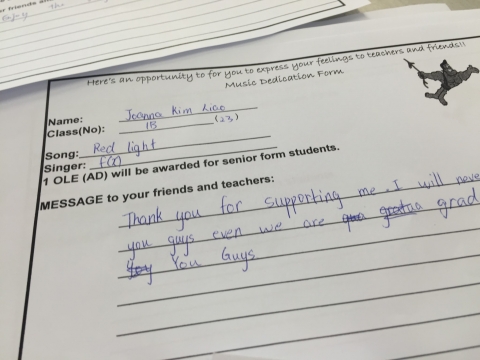 Here's an opportunity to for you to express your feelings to teachers and friends!!
Music Dedication Form
Name: Joanna Kim Liao
Class(No): 1B (23)
Song: Red light
Singer: f(x)
1 OLE (AD) will be awarded for senior form students.
MESSAGE to your friends and teachers:
Thank you for supporting me. I will neve
you guys even we are grad
You Guys